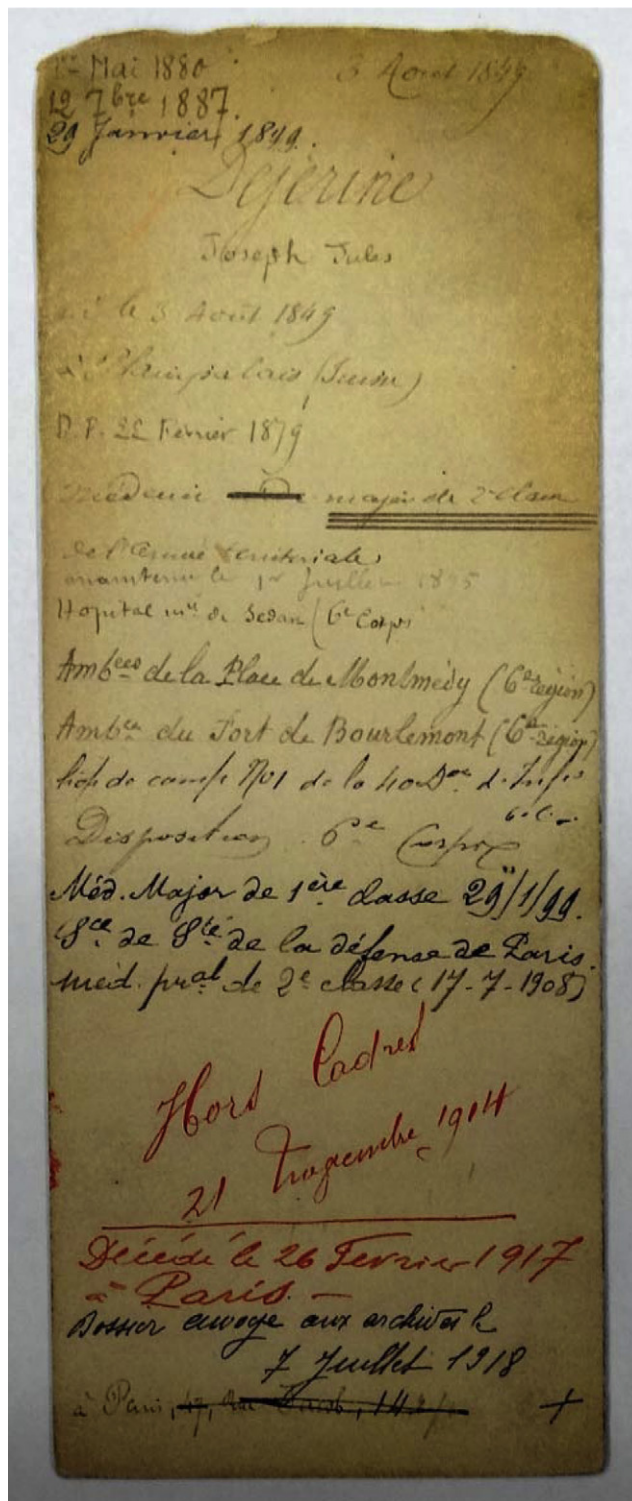 1er Mai 1880 3 Aout 1849
12 7bre 1887.
29 Janvier 1899.
Dejerine
Joseph Jules
né le 3 Août 1849
à Plainpalais (Suisse)
D. P. 22 Février 1879
Médecin major de 2e Classe
de l'Armée territoriale
maintenu le 1er Juillet 1895
Hopital mre de Sedan (6e Corps
Ambces de la Place de Montmédy (6e région)
Ambce du Fort de Bourlemont (6e région)
hop de camp No 1 de la 40e Don d'Infie
Disposition 6e Corps
Méd. Major de 1ère classe 29/1/99.
Sce de Sté de la défense de Paris.
méd. pral de 2e classe (17-7-1908)
Hors Cadres
21 1914
Décédé le 26 Février 1917
à Paris. —
Dossier envoyé aux archives le
7 Juillet 1918
à Paris, 17, rue Jacob, 14 +